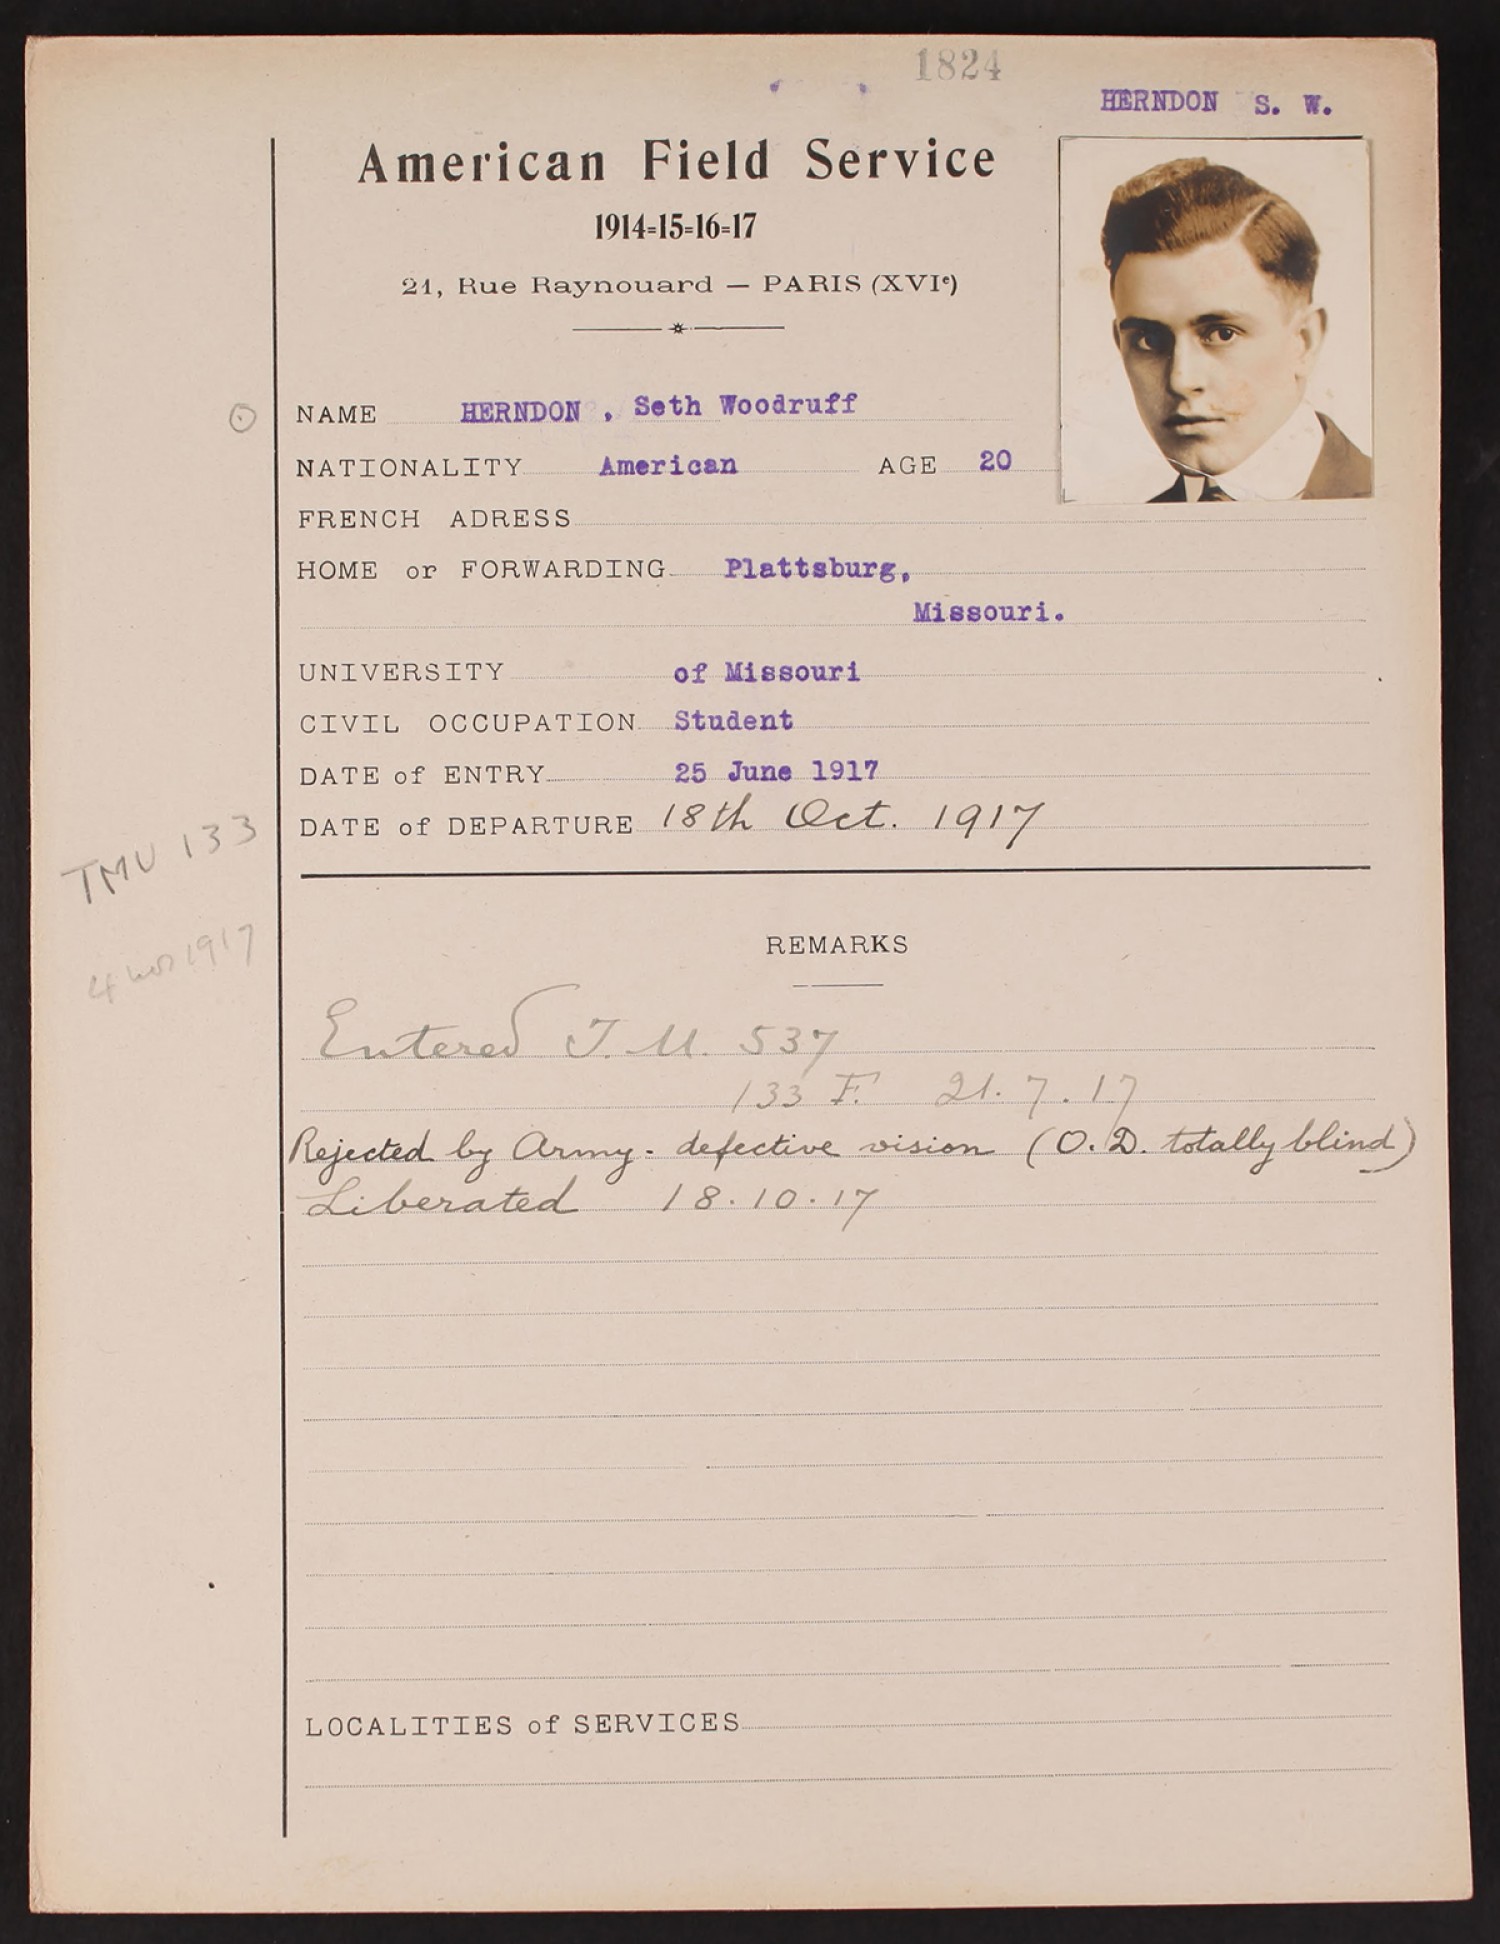 1824
HERNDON S. W.
American Field Service
1914=15=16=17
21, Rue Raynouard — PARIS (XVIe)
NAME HERNDON , Seth Woodruff
NATIONALITY American AGE 20
FRENCH ADRESS
HOME or FORWARDING Plattsburg,
Missouri.
UNIVERSITY of Missouri
CIVIL OCCUPATION Student
DATE of ENTRY 25 June 1917
DATE of DEPARTURE 18th Oct. 1917
TMU 133
4 mos 1917
REMARKS
Entered T.M. 537
133 F. 21.7.17
Rejected by Army - defective vision (O.D. totally blind)
Liberated 18.10.17
LOCALITIES of SERVICES